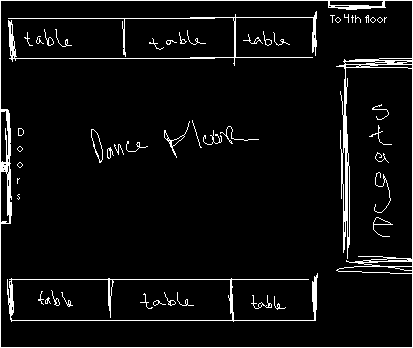 To 4th floor
table table table
Doors
Dance floor
stage
table table table